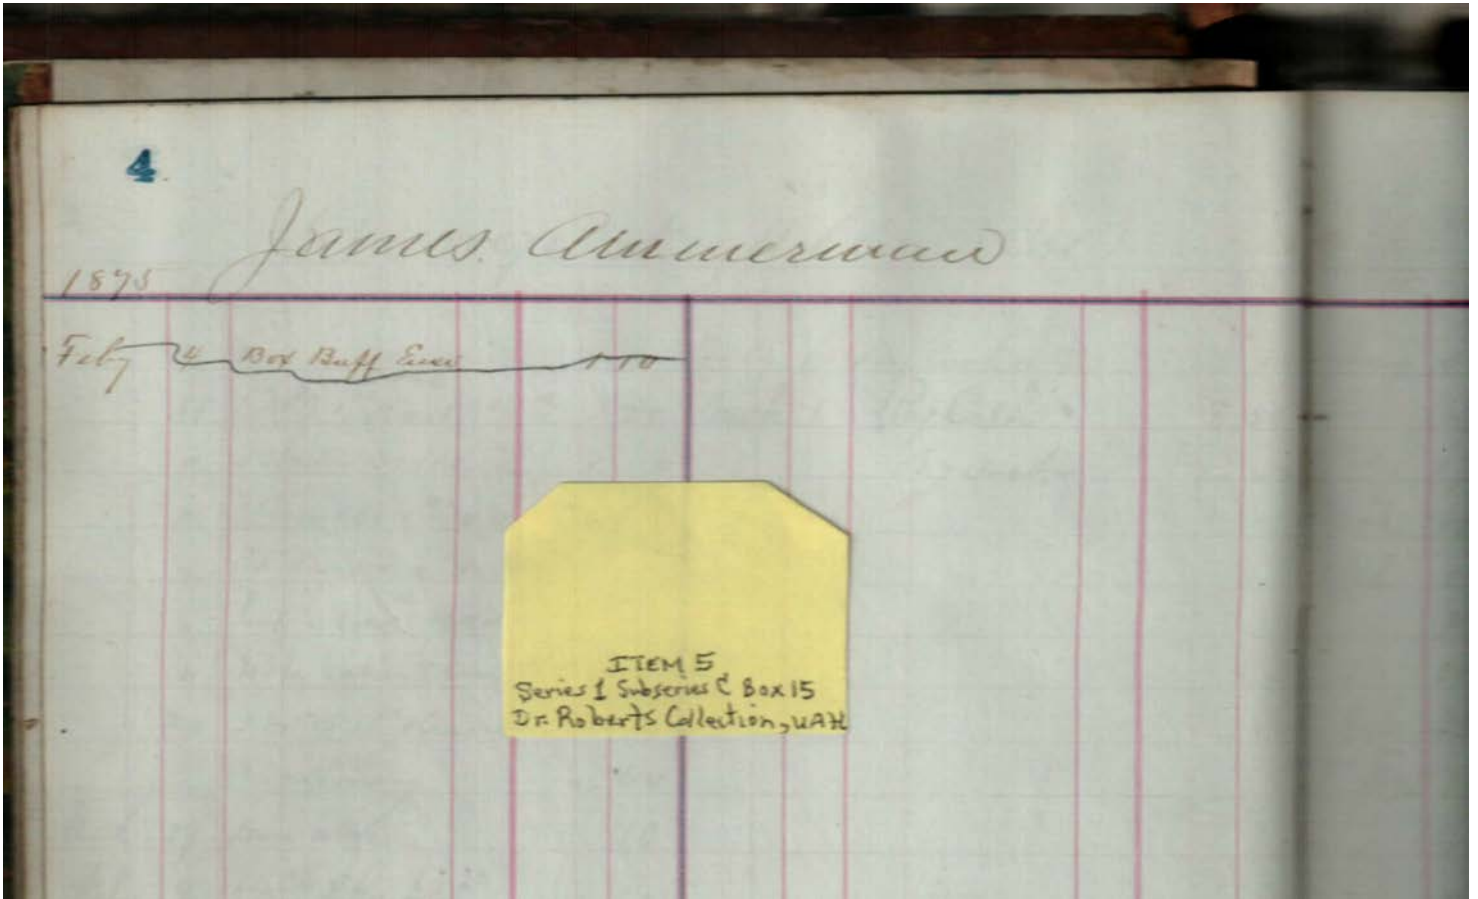 4
James. Ammerman
1875
Feby 4 Box Buff Env 1 10
ITEM 5
Series 1 Subseries C Box 15
Dr. Roberts Collection, UAH